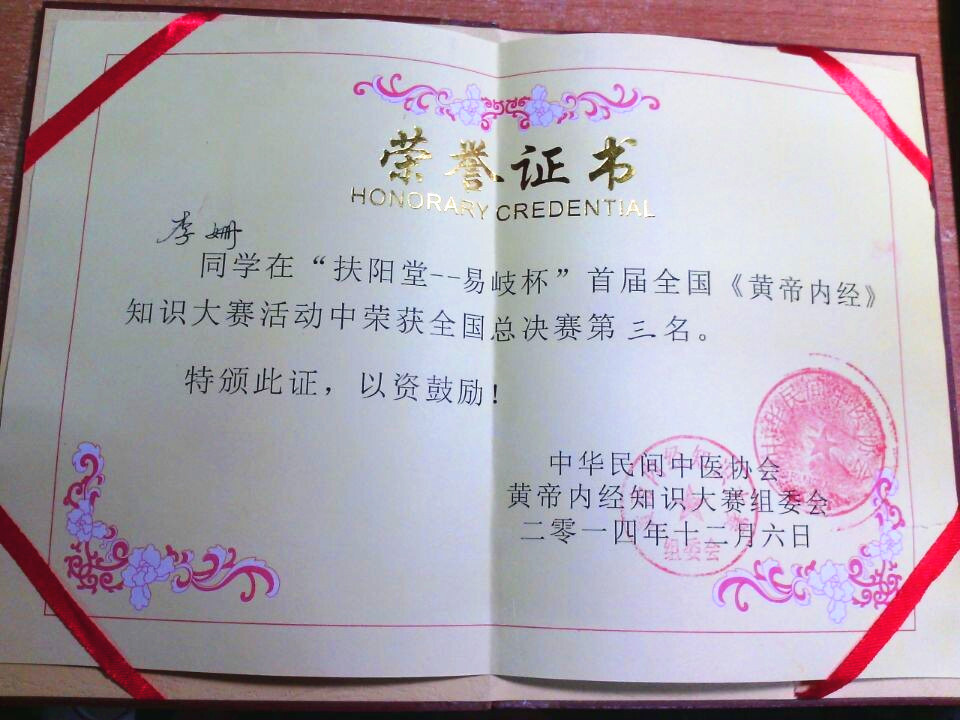 荣誉证书
HONORARY CREDENTIAL
李姗
同学在“扶阳堂--易岐杯”首届全国《黄帝内经》
知识大赛活动中荣获全国总决赛第三名。
特颁此证，以资鼓励！
中华民间中医协会
黄帝内经知识大赛组委会
二零一四年十二月六日
中华民间中医协会
组委会